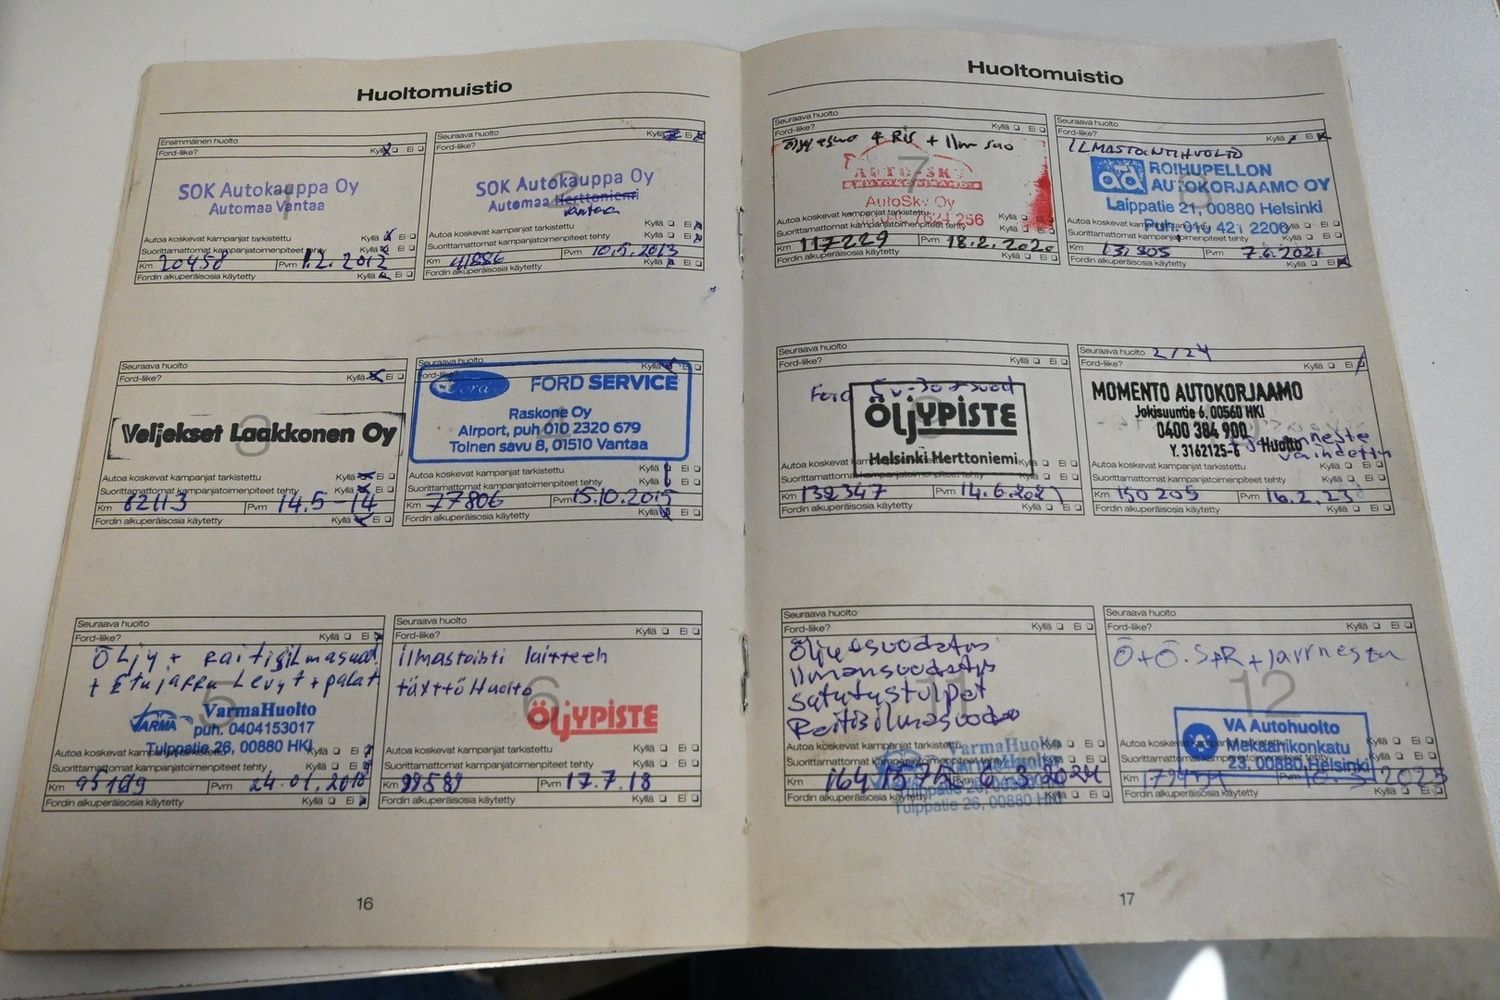 Huoltomuistio
Ensimmäinen huolto
Ford-liike? Kyllä Ei
1
SOK Autokauppa Oy
Automaa Vantaa
Autoa koskevat kampanjat tarkistettu Kyllä Ei
Suorittamattomat kampanjatoimenpiteet tehty Kyllä Ei
Km 20458 Pvm 1.2.2012
Fordin alkuperäisosia käytetty Kyllä Ei
Seuraava huolto
Ford-liike? Kyllä Ei
2
SOK Autokauppa Oy
Automaa Herttoniemi
Vantaa
Autoa koskevat kampanjat tarkistettu Kyllä Ei
Suorittamattomat kampanjatoimenpiteet tehty Kyllä Ei
Km 41886 Pvm 10.5.2013
Fordin alkuperäisosia käytetty Kyllä Ei
Seuraava huolto
Ford-liike? Kyllä Ei
3
Veljekset Laakkonen Oy
Autoa koskevat kampanjat tarkistettu Kyllä Ei
Suorittamattomat kampanjatoimenpiteet tehty Kyllä Ei
Km 62113 Pvm 14.5-14
Fordin alkuperäisosia käytetty Kyllä Ei
Seuraava huolto
Ford-liike? Kyllä Ei
FORD SERVICE
Raskone Oy
Airport, puh 010 2320 679
Tolnen savu 8, 01510 Vantaa
Autoa koskevat kampanjat tarkistettu Kyllä Ei
Suorittamattomat kampanjatoimenpiteet tehty Kyllä Ei
Km 77806 Pvm 15.10.2015
Fordin alkuperäisosia käytetty Kyllä Ei
Seuraava huolto
Ford-liike? Kyllä Ei
Öljy + raitisilmasuod.
+ Etujarru Levyt + palat
5
VARMA VarmaHuolto
puh. 0404153017
Tulppatie 26, 00880 HKI
Autoa koskevat kampanjat tarkistettu Kyllä Ei
Suorittamattomat kampanjatoimenpiteet tehty Kyllä Ei
Km 95189 Pvm 24.01.2018
Fordin alkuperäisosia käytetty Kyllä Ei
Seuraava huolto
Ford-liike? Kyllä Ei
ilmastointi laitteen
täyttö Huolto
6
ÖLJYPISTE
Autoa koskevat kampanjat tarkistettu Kyllä Ei
Suorittamattomat kampanjatoimenpiteet tehty Kyllä Ei
Km 99589 Pvm 17.7.18
Fordin alkuperäisosia käytetty Kyllä Ei
16
Huoltomuistio
Seuraava huolto
Ford-liike? Kyllä Ei
+ Ilm suo
7
AUTOSKY
AutoSky Oy
256
Autoa koskevat kampanjat tarkistettu
Suorittamattomat kampanjatoimenpiteet tehty Kyllä Ei
Km 117229 Pvm 18.2.2020
Fordin alkuperäisosia käytetty Kyllä Ei
Seuraava huolto
Ford-liike? Kyllä Ei
ILMASTOINTIHUOLTO
8
ad ROIHUPELLON
AUTOKORJAAMO OY
Laippatie 21, 00880 Helsinki
Puh. 010 421 2206
Autoa koskevat kampanjat tarkistettu Kyllä Ei
Suorittamattomat kampanjatoimenpiteet tehty Kyllä Ei
Km 131305 Pvm 7.6.2021
Fordin alkuperäisosia käytetty Kyllä Ei
Seuraava huolto
Ford-liike?
Ford 5w-30
ÖLJYPISTE
Helsinki Herttoniemi
Autoa koskevat kampanjat tarkistettu Kyllä Ei
Suorittamattomat kampanjatoimenpiteet tehty Kyllä Ei
Km 132347 Pvm 14.6.2021
Fordin alkuperäisosia käytetty Kyllä Ei
Seuraava huolto 2/24
Ford-liike? Kyllä Ei
MOMENTO AUTOKORJAAMO
Jokisuuntie 6, 00560 HKI
0400 384 900
Y. 3162125-6 Huolto
+ jarruneste
vaihdettu
Autoa koskevat kampanjat tarkistettu Kyllä Ei
Suorittamattomat kampanjatoimenpiteet tehty Kyllä Ei
Km 150205 Pvm 16.2.23
Fordin alkuperäisosia käytetty Kyllä Ei
Seuraava huolto
Ford-liike? Kyllä Ei
Öljysuodatus
ilmansuodatus
Sytytystulpat
Raitisilmasuodas
11
VarmaHuolto
Autoa koskevat kampanjat tarkistettu Kyllä Ei
Suorittamattomat kampanjatoimenpiteet tehty Kyllä Ei
Km 164 Pvm 2024
Fordin alkuperäisosia käytetty Kyllä Ei
Tulppatie 26, 00880 HKI
Seuraava huolto
Ford-liike? Kyllä Ei
Ö+Ö.S+R+jarrnesta
12
VA Autohuolto
Mekaanikonkatu
23, 00880 Helsinki
Autoa koskevat kampanjat tarkistettu Kyllä Ei
Suorittamattomat kampanjatoimenpiteet tehty Kyllä Ei
Km Pvm 2025
Fordin alkuperäisosia käytetty Kyllä Ei
17